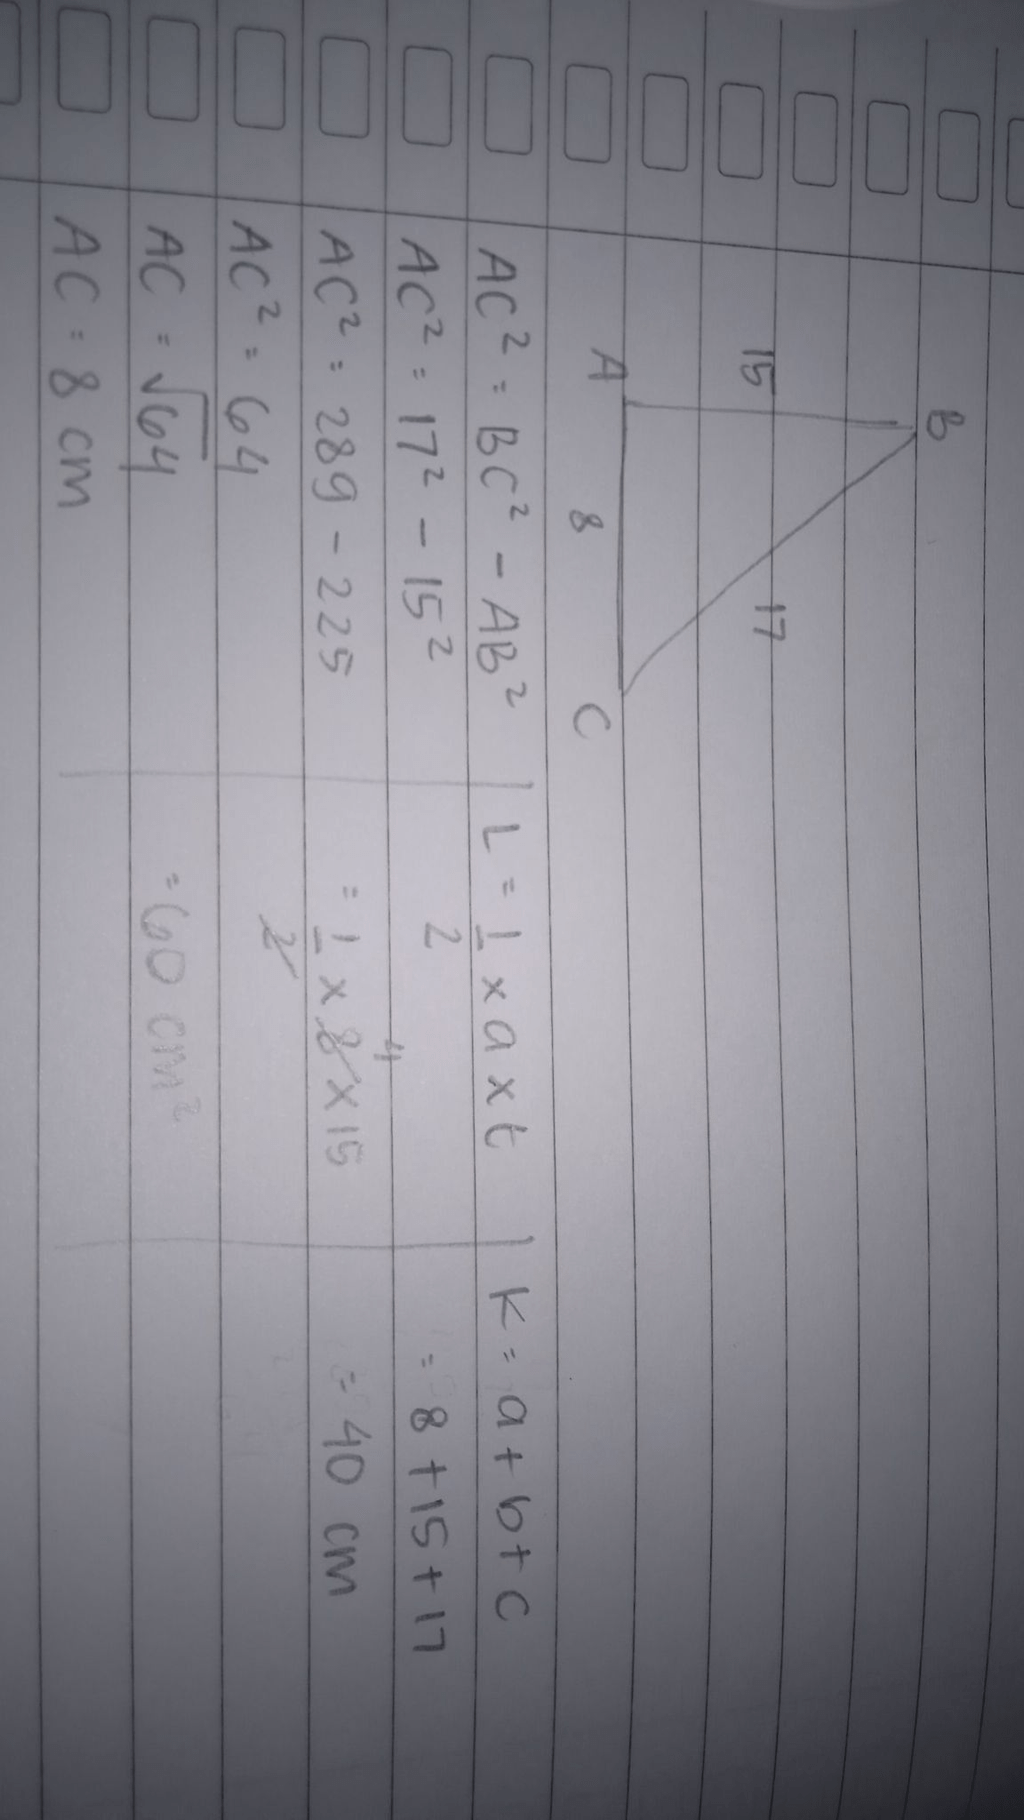 B
15
17
A
8
C
AC² = BC² - AB²
AC² = 17² - 15²
AC² = 289 - 225
AC² = 64
AC = √64
AC = 8 cm
L = 1/2 x a x t
= 1/2 x 8 x 15
4
= 60 cm²
K = a + b + c
= 8 + 15 + 17
= 40 cm